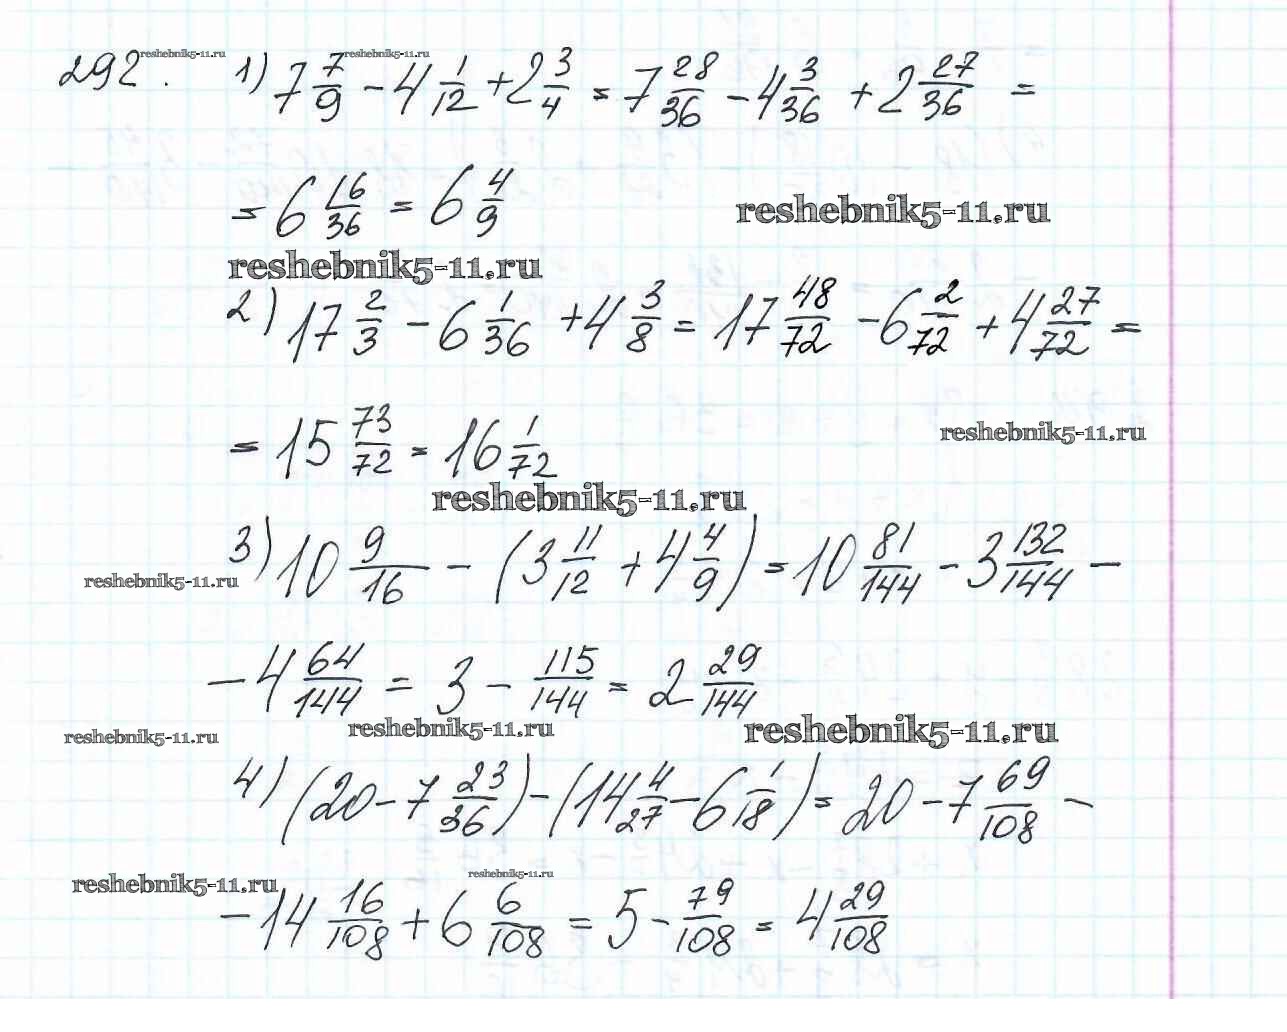 reshebnik5-11.ru reshebnik5-11.ru
292. 1) 7 7/9 - 4 1/12 + 2 3/4 = 7 28/36 - 4 3/36 + 2 27/36 =
= 6 16/36 = 6 4/9
reshebnik5-11.ru
reshebnik5-11.ru
2) 17 2/3 - 6 1/36 + 4 3/8 = 17 48/72 - 6 2/72 + 4 27/72 =
= 15 73/72 = 16 1/72
reshebnik5-11.ru
reshebnik5-11.ru
3) 10 9/16 - (3 11/12 + 4 4/9) = 10 81/144 - 3 132/144 -
reshebnik5-11.ru
- 4 64/144 = 3 - 115/144 = 2 29/144
reshebnik5-11.ru reshebnik5-11.ru reshebnik5-11.ru
4) (20 - 7 23/36) - (14 4/27 - 6 1/18) = 20 - 7 69/108 -
reshebnik5-11.ru reshebnik5-11.ru
- 14 16/108 + 6 6/108 = 5 - 79/108 = 4 29/108